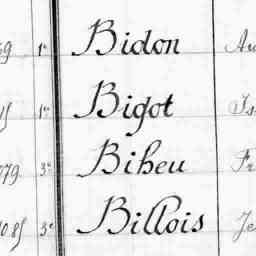 1e Bidon Au
1re Bigot Is
779 3e Biheu Fr
1085 3e Billois Je